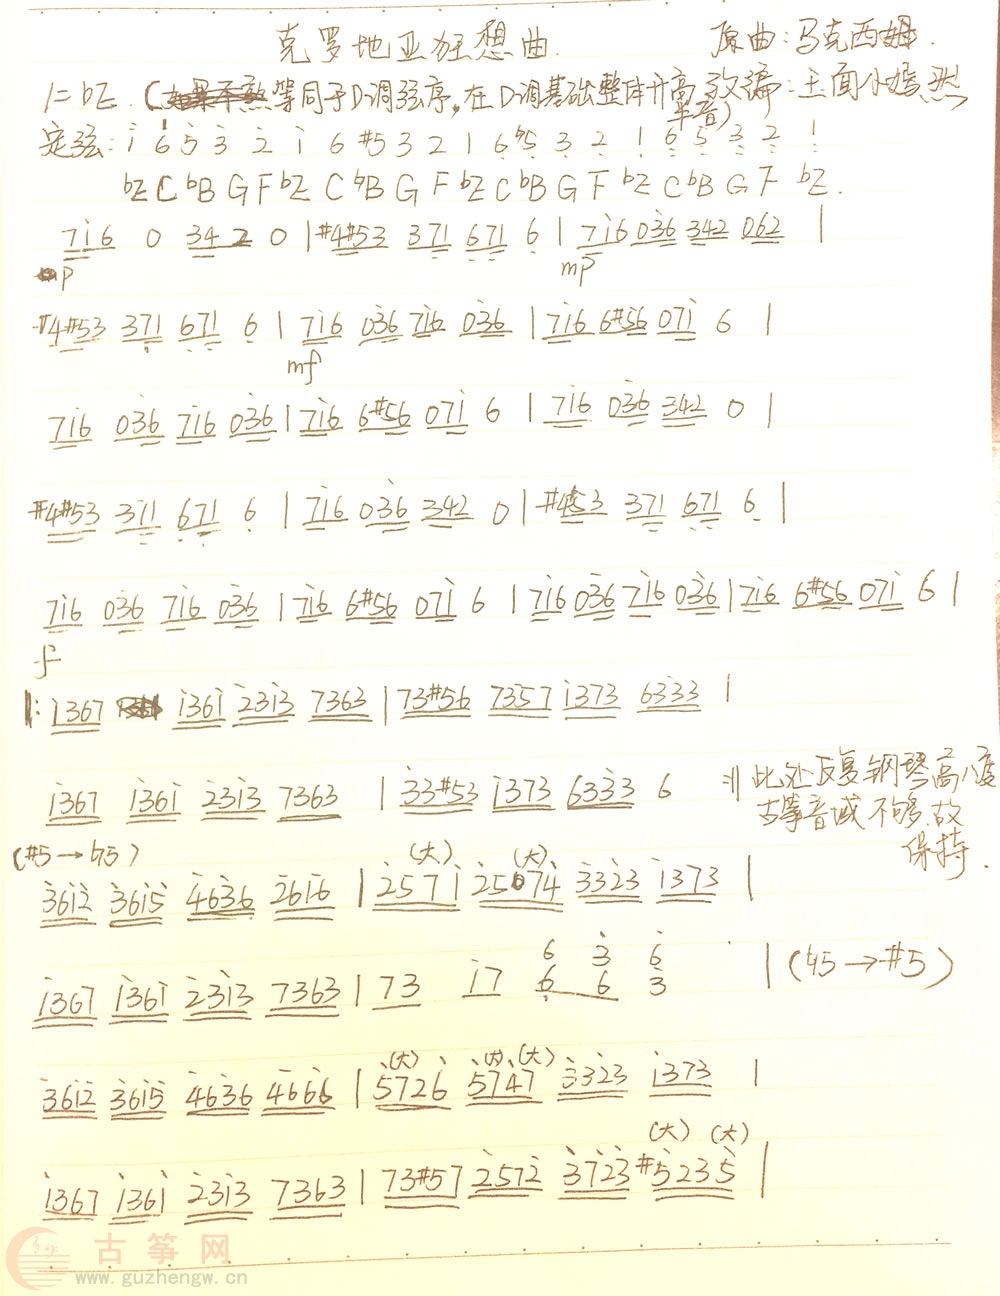 克罗地亚狂想曲. 原曲:马克西姆.
1=bE. (等同于D调弦序。在D调基础整体升高半音) 改编:王面小嫣然
定弦: i 6 5 3 2 i 6 #5 3 2 1 6 ♮5 3 2 1 6 5 3 2 1
bE C bB G F bE C bB G F bE C bB G F bE C bB G F bE.
7i6 0 342 0 | #4#53 371 671 6 | 7i6 036 342 062 |
p mp
#4#53 371 671 6 | 7i6 036 7i6 036 | 7i6 6#56 07i 6 |
mf
7i6 036 7i6 036 | 7i6 6#56 07i 6 | 7i6 036 342 0 |
#4#53 371 671 6 | 7i6 036 342 0 | #4#53 371 671 6 |
7i6 036 7i6 036 | 7i6 6#56 07i 6 | 7i6 036 7i6 036 | 7i6 6#56 07i 6 |
f
|: i367 i36i 23i3 7363 | 73#56 7357 i373 6333 |
i367 i36i 23i3 7363 | 33#53 i373 6333 6 :|| 此处反复钢琴高八度
古筝音域不够,故
保持.
(#5→♮5) (大) (大)
36i2 36i5 4636 26i6 | 257i 25074 3323 i373 |
6 3 6
i367 i36i 23i3 7363 | 73 i7 6 6 3 | (♮5→#5)
(大) (大) (大)
36i2 36i5 4636 4666 | 5726 5747 3323 i373 |
(大) (大)
i367 i36i 23i3 7363 | 73#57 2572 3723 #5235 |
古筝网
www.guzhengw.cn